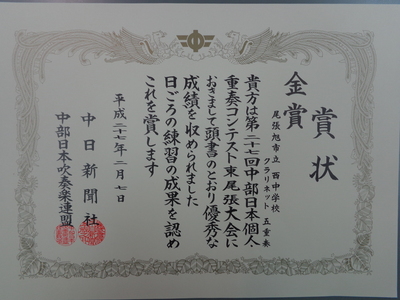 賞状
金賞
尾張旭市立 西中学校
クラリネット 五重奏
貴方は第二十七回中部日本個人
重奏コンテスト東尾張大会に
おきまして頭書のとおり優秀な
成績を収められました
日ごろの練習の成果を認め
これを賞します
平成二十七年二月七日
中日新聞社
中部日本吹奏楽連盟